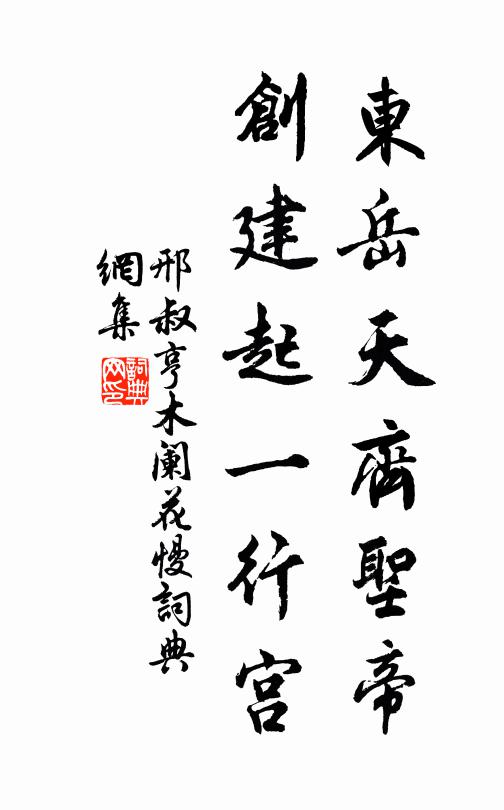 東岳天齊聖帝
創建起一行宮
邢叔亨木蘭花慢詞典
網集
詞典網印